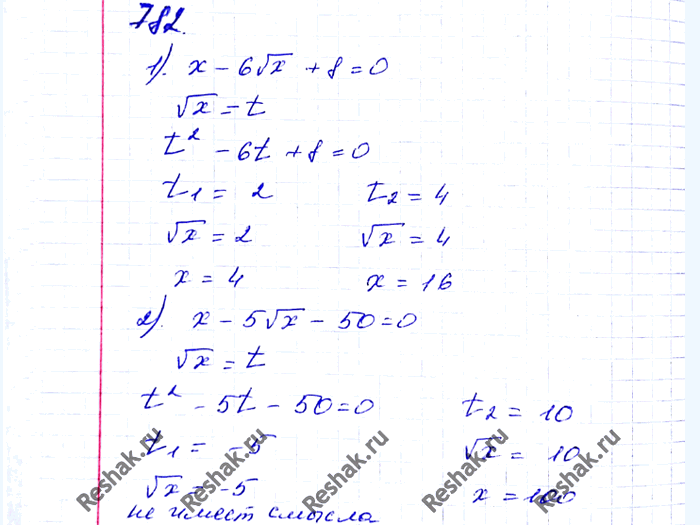 782.
1). x - 6√x + 8 = 0
√x = t
t² - 6t + 8 = 0
t1 = 2 t2 = 4
√x = 2 √x = 4
x = 4 x = 16
2). x - 5√x - 50 = 0
√x = t
t² - 5t - 50 = 0 t2 = 10
t1 = -5 √x = 10
√x = -5 x = 100
не имеет смысла
Reshak.ru Reshak.ru Reshak.ru Reshak.ru Reshak.ru